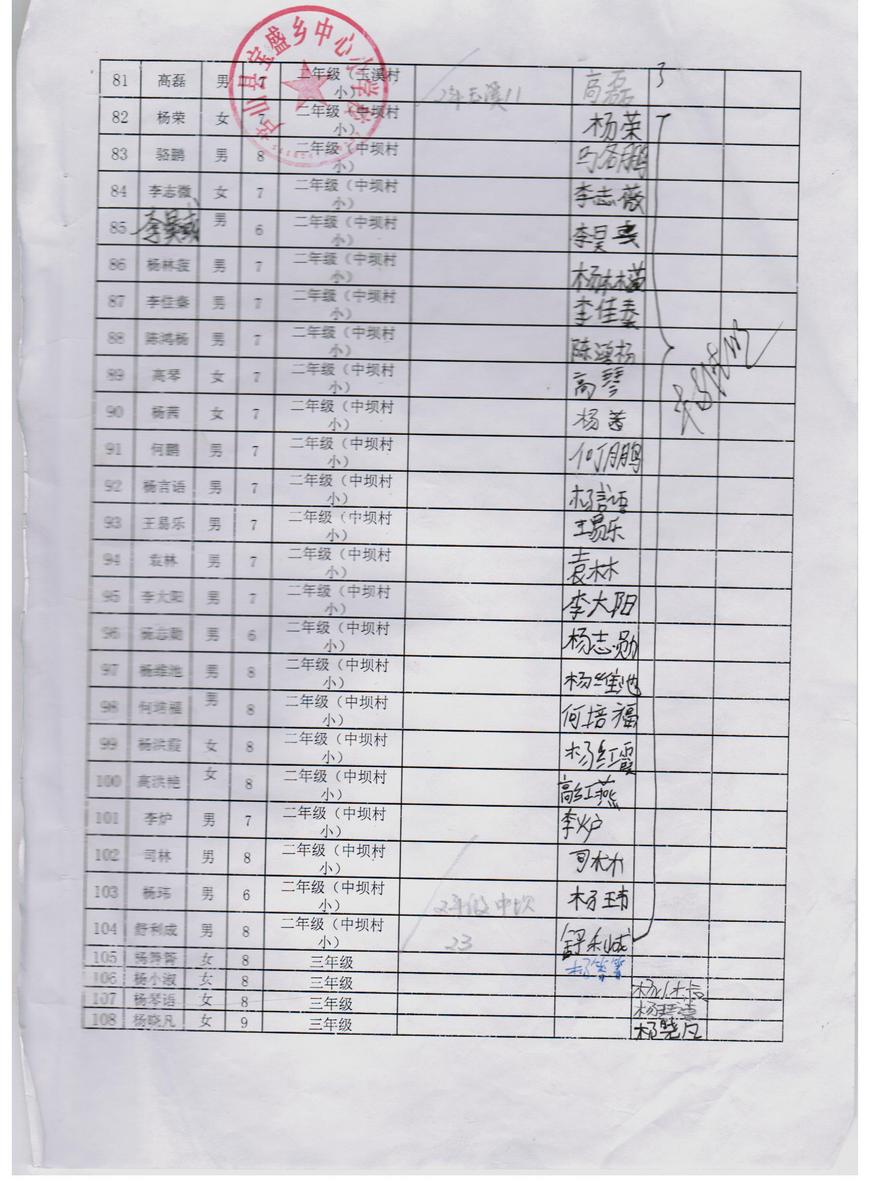 芦山县宝盛乡中心小学校
81 高磊 男 7 二年级（玉溪村小） 2年玉溪11 高磊 3
82 杨荣 女 7 二年级（中坝村小） 杨荣
83 骆鹏 男 8 二年级（中坝村小） 骆鹏
84 李志微 女 7 二年级（中坝村小） 李志薇
85 男 6 二年级（中坝村小） 李昊
86 杨林 男 7 二年级（中坝村小） 杨林
87 李佳 男 7 二年级（中坝村小） 李佳
88 陈鸿杨 男 7 二年级（中坝村小） 陈鸿杨
89 高琴 女 7 二年级（中坝村小） 高琴
90 杨茜 女 7 二年级（中坝村小） 杨茜
91 何鹏 男 7 二年级（中坝村小） 何鹏
92 杨言语 男 7 二年级（中坝村小） 杨言语
93 王易乐 男 7 二年级（中坝村小） 王易乐
94 袁林 男 7 二年级（中坝村小） 袁林
95 李大阳 男 7 二年级（中坝村小） 李大阳
96 杨志勋 男 6 二年级（中坝村小） 杨志勋
97 杨维池 男 8 二年级（中坝村小） 杨维池
98 何培福 男 8 二年级（中坝村小） 何培福
99 杨洪霞 女 8 二年级（中坝村小） 杨红霞
100 高洪艳 女 8 二年级（中坝村小） 高红燕
101 李炉 男 7 二年级（中坝村小） 李炉
102 司林 男 8 二年级（中坝村小） 司林
103 杨玮 男 6 二年级（中坝村小） 2年级中坝 杨玮
104 舒利成 男 8 二年级（中坝村小） 23 舒利成
105 女 8 三年级
106 杨小淑 女 8 三年级 杨小淑
107 杨琴语 女 8 三年级
108 杨晓凡 女 9 三年级 杨晓凡